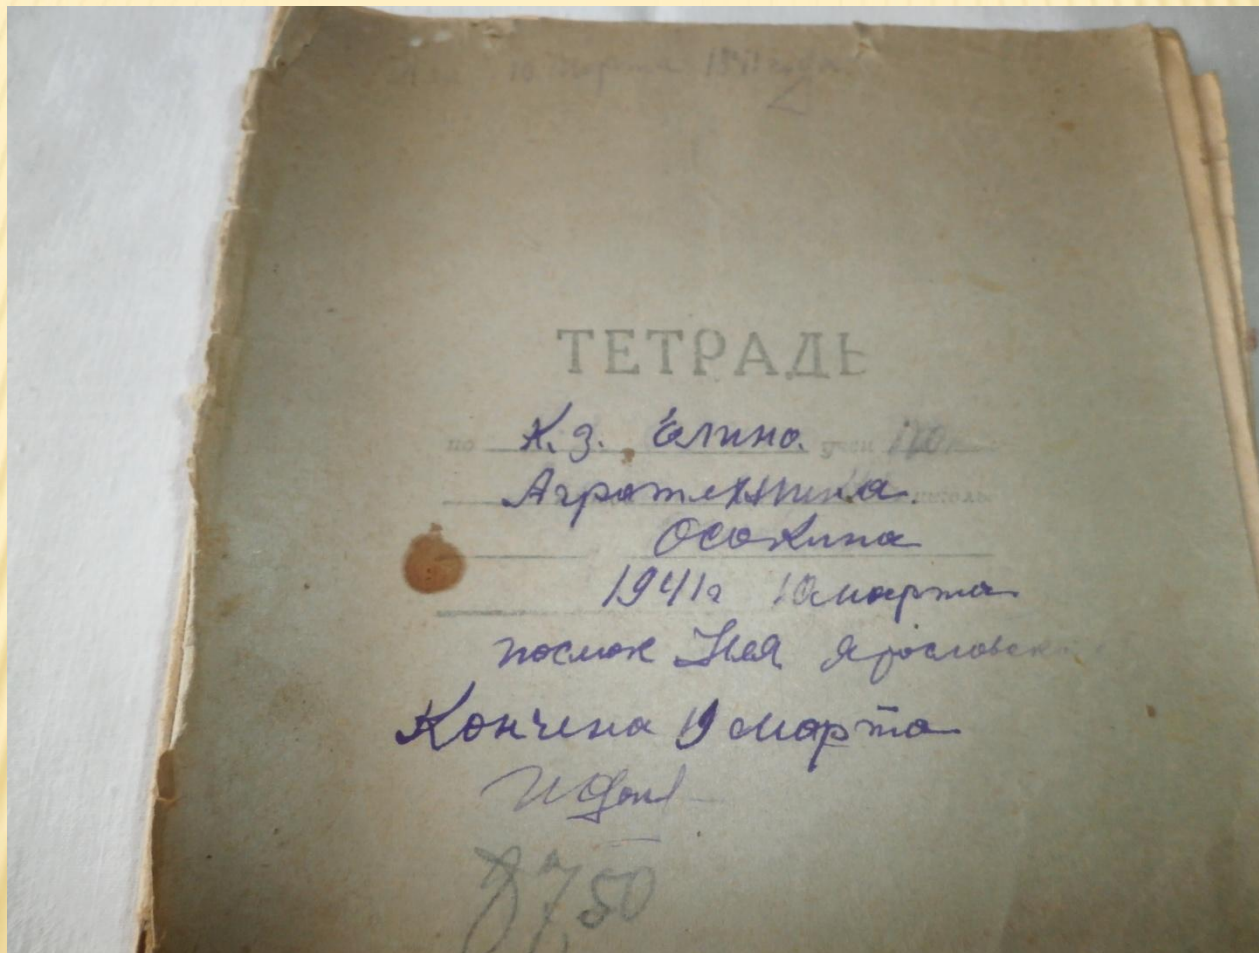 ТЕТРАДЬ
по К.З. Елино. учен
Агротехника.
Осокина
1941г 10 марта
поселок Нея Ярославск
Кончена 19 марта
8750